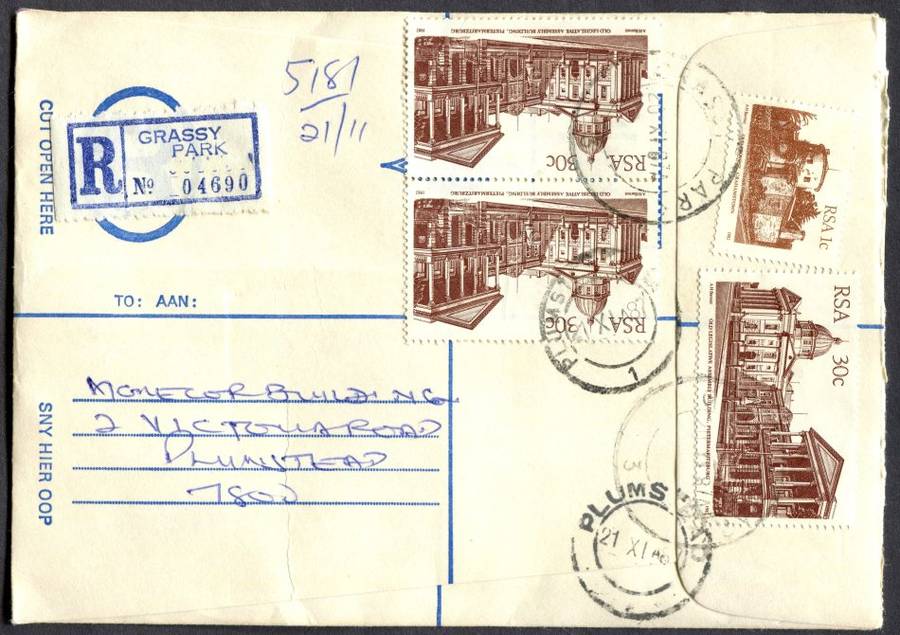 CUT OPEN HERE
R
GRASSY
PARK
Nº 04690
5181
21/11
OLD LEGISLATIVE ASSEMBLY BUILDING, PIETERMARITZBURG
1982
RSA 30c
OLD LEGISLATIVE ASSEMBLY BUILDING, PIETERMARITZBURG
1982
RSA 30c
RSA 1c
1982
RSA
30c
OLD LEGISLATIVE ASSEMBLY BUILDING, PIETERMARITZBURG
TO: AAN:
SNY HIER OOP
2 VICTORIA ROAD
PLUMSTEAD
7800
PLUMSTEAD
21 XI